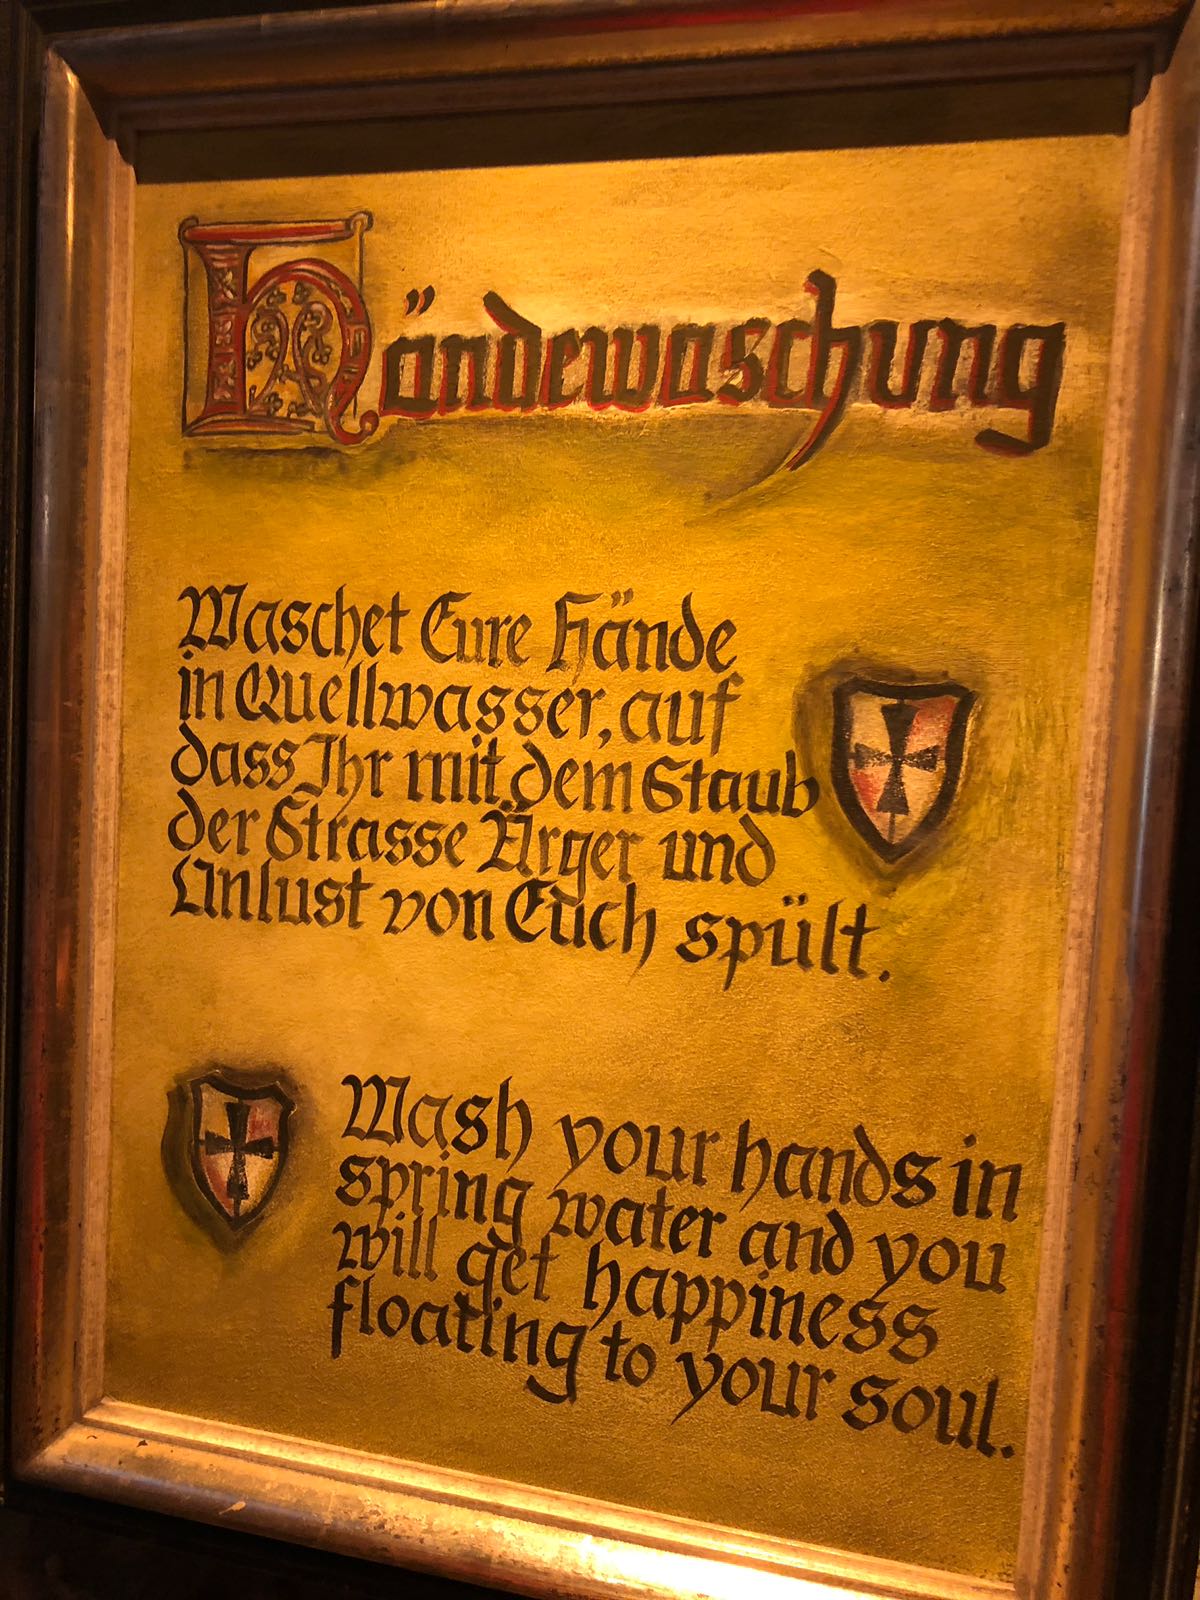 Händewaschung
Waschet Eure Hände
in Quellwasser, auf
dass Ihr mit dem Staub
der Strasse Ärger und
Unlust von Euch spült.
Wash your hands in
spring water and you
will get happiness
floating to your soul.